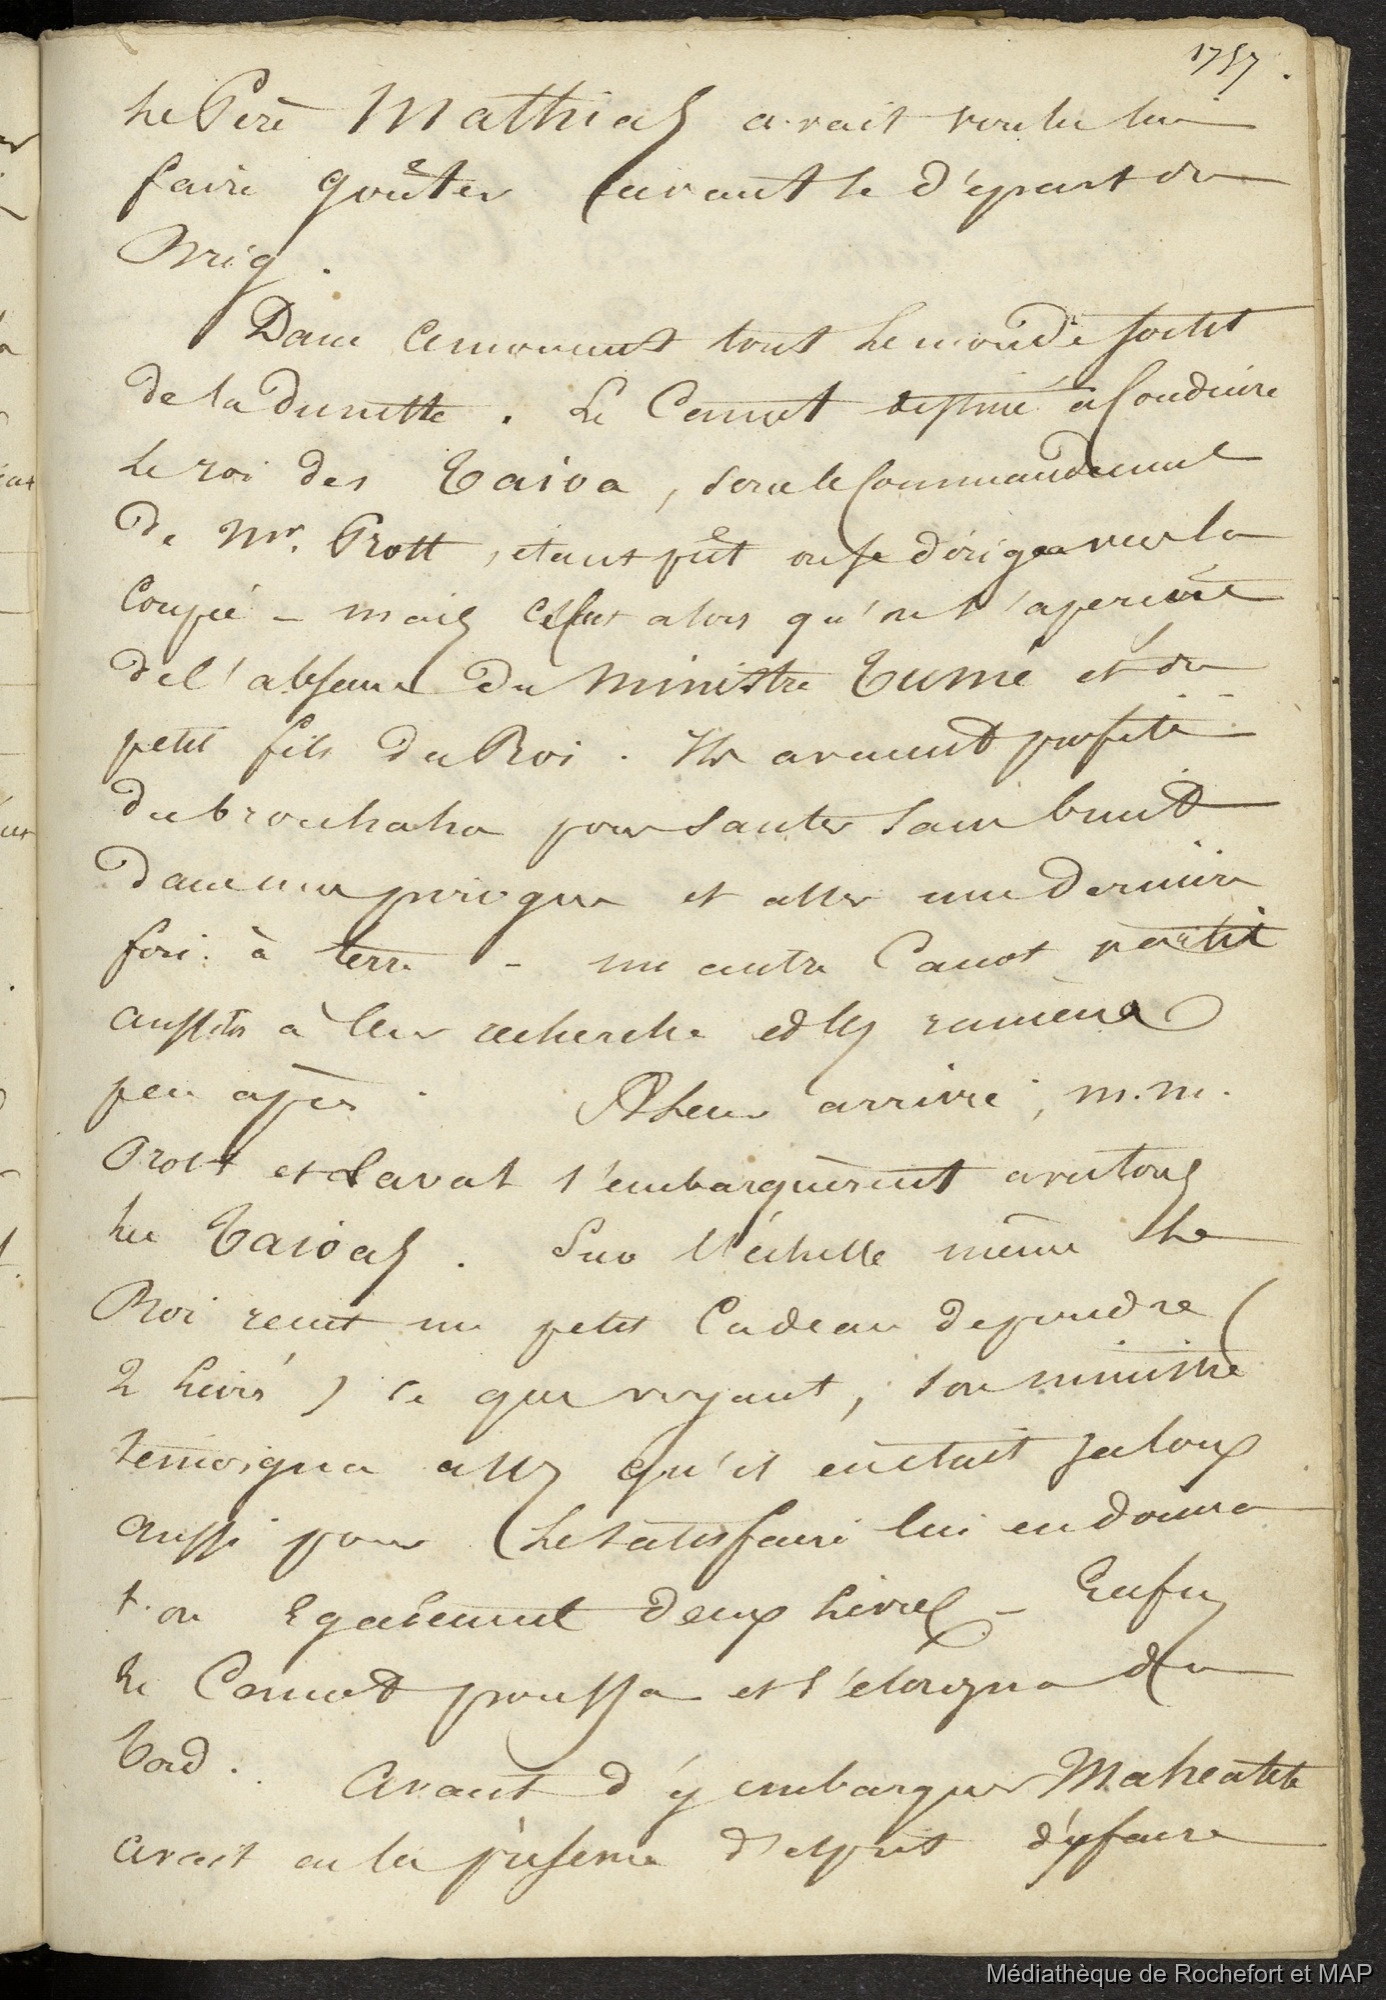 1757.
Le Père Mathias avait voulu lui
faire goûter avant le départ du
Brig.
Dans ce moment tout le monde sortit
de la dunette. Le Canot destiné à Conduire
le roi des Taïoa, sous le Commandement
de Mr. Prott, étant prêt on se dirigea vers la
Coupée - mais ce fut alors qu'on s'aperçut
de l'absence du Ministre Tumé et du
petit fils du Roi. Ils avaient profité
du brouhaha pour sauter sans bruit
dans une pirogue et aller une dernière
fois à terre - un autre Canot partit
aussitôt à leur recherche et les ramena
peu après. A leur arrivée, m.m.
Prott et Lavat s'embarquèrent avec tous
les Taioas. Sur l'échelle même le
Roi reçut un petit Cadeau de poudre (
2 livres) ce que voyant, son ministre
témoigna assez qu'il en était jaloux
aussi pour le satisfaire lui en donna
t-on Egalement deux livres - Enfin
le Canot poussa et s'éloigna du
bord. Avant d'y embarquer Maheatité
avait eu la présence d'esprit d'y faire
Médiathèque de Rochefort et MAP